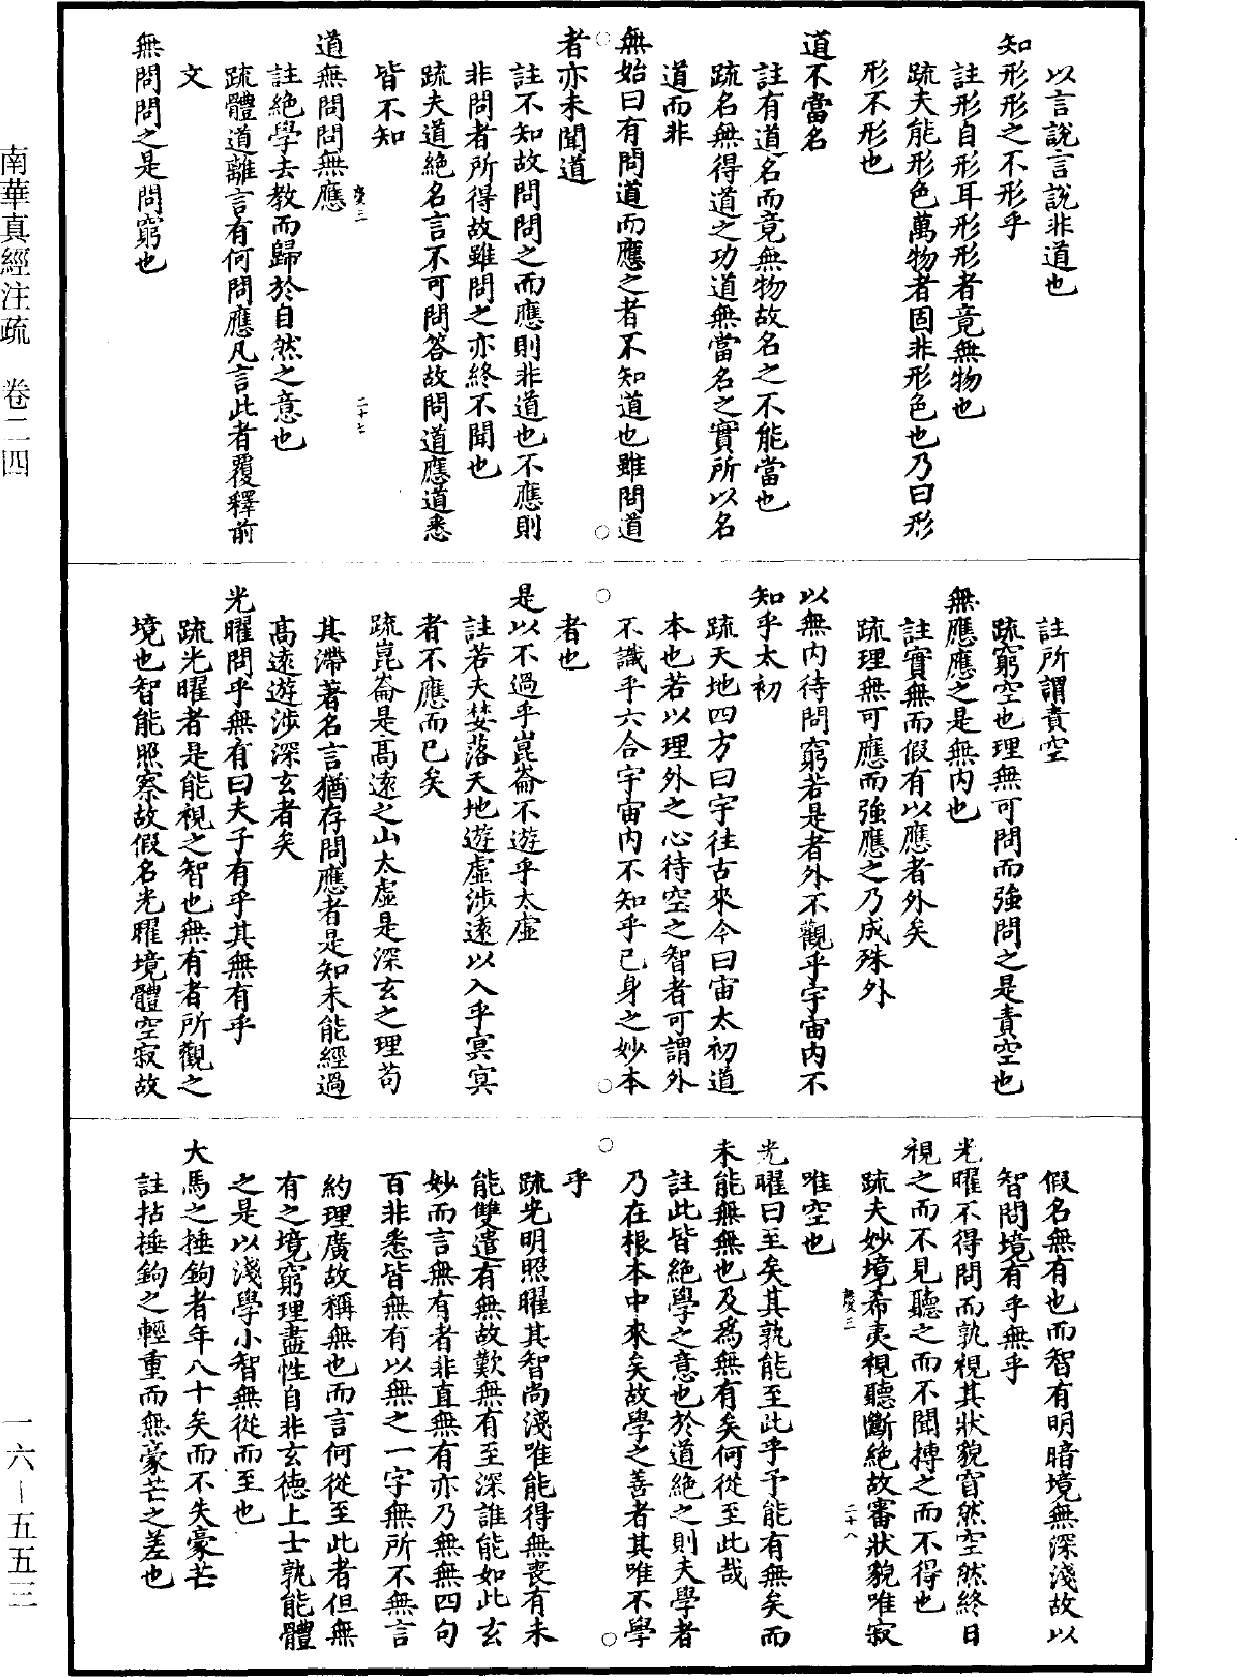 以言說言說非道也
知形形之不形乎
註形自形耳形形者竟無物也
疏夫能形色萬物者固非形色也乃曰形
形不形也
道不當名
註有道名而竟無物故名之不能當也
疏名無得道之功道無當名之實所以名
道而非
無始曰有問道而應之者不知道也雖問道
者亦未聞道
註不知故問問之而應則非道也不應則
非問者所得故雖問之亦終不聞也
疏夫道絶名言不可問答故問道應道悉
皆不知
慶三 二十七
道無問問無應
註絕學去教而歸於自然之意也
疏體道離言有何問應凡言此者覆釋前
文
無問問之是問窮也
註所謂責空
疏窮空也理無可問而強問之是責空也
無應應之是無内也
註實無而假有以應者外矣
疏理無可應而強應之乃成殊外
以無内待問窮若是者外不觀乎宇宙内不
知乎太初
疏天地四方曰宇往古來今曰宙太初道
本也若以理外之心待空之智者可謂外
不識乎六合宇宙内不知乎己身之妙本
者也
是以不過乎崑崙不遊乎太虛
註若夫婪落天地遊虛涉遠以入乎冥冥
者不應而已矣
疏崑崙是高遠之山太虛是深玄之理苟
其滯著名言猶存問應者是知未能經過
高遠遊涉深玄者矣
光曜問乎無有曰夫子有乎其無有乎
疏光曜者是能視之智也無有者所觀之
境也智能照察故假名光曜境體空寂故
假名無有也而智有明暗境無深淺故以
智問境有乎無乎
光曜不得問而孰視其狀貌窅然空然終日
視之而不見聽之而不聞搏之而不得也
疏夫妙境希夷視聽斷絶故審狀貌唯寂
慶三 二十八
唯空也
光曜曰至矣其孰能至此乎予能有無矣而
未能無無也及為無有矣何從至此哉
註此皆絶學之意也於道絶之則夫學者
乃在根本中來矣故學之善者其唯不學
乎
疏光明照曜其智尚淺唯能得無喪有未
能雙遣有無故歎無有至深誰能如此玄
妙而言無有者非直無有亦乃無無四句
百非悉皆無有以無之一字無所不無言
約理廣故稱無也而言何從至此者但無
有之境窮理盡性自非玄德上士孰能體
之是以淺學小智無從而至也
大馬之捶鉤者年八十矣而不失豪芒
註拈捶鉤之輕重而無豪芒之差也
南華真經注疏 卷二四
一六—五五三